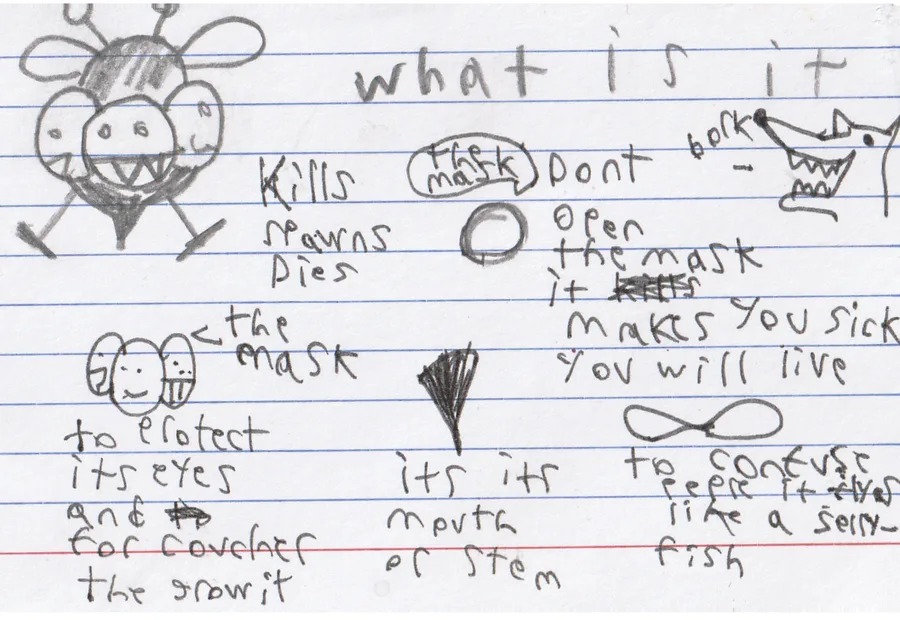 what is it
bork
Kills
spawns
Dies
the
mask
Dont
open
the mask
it
makes you sick
you will live
the
mask
to protect
its eyes
and
for
the
its its
mouth
or stem
to confuse
it
like a jelly-
fish